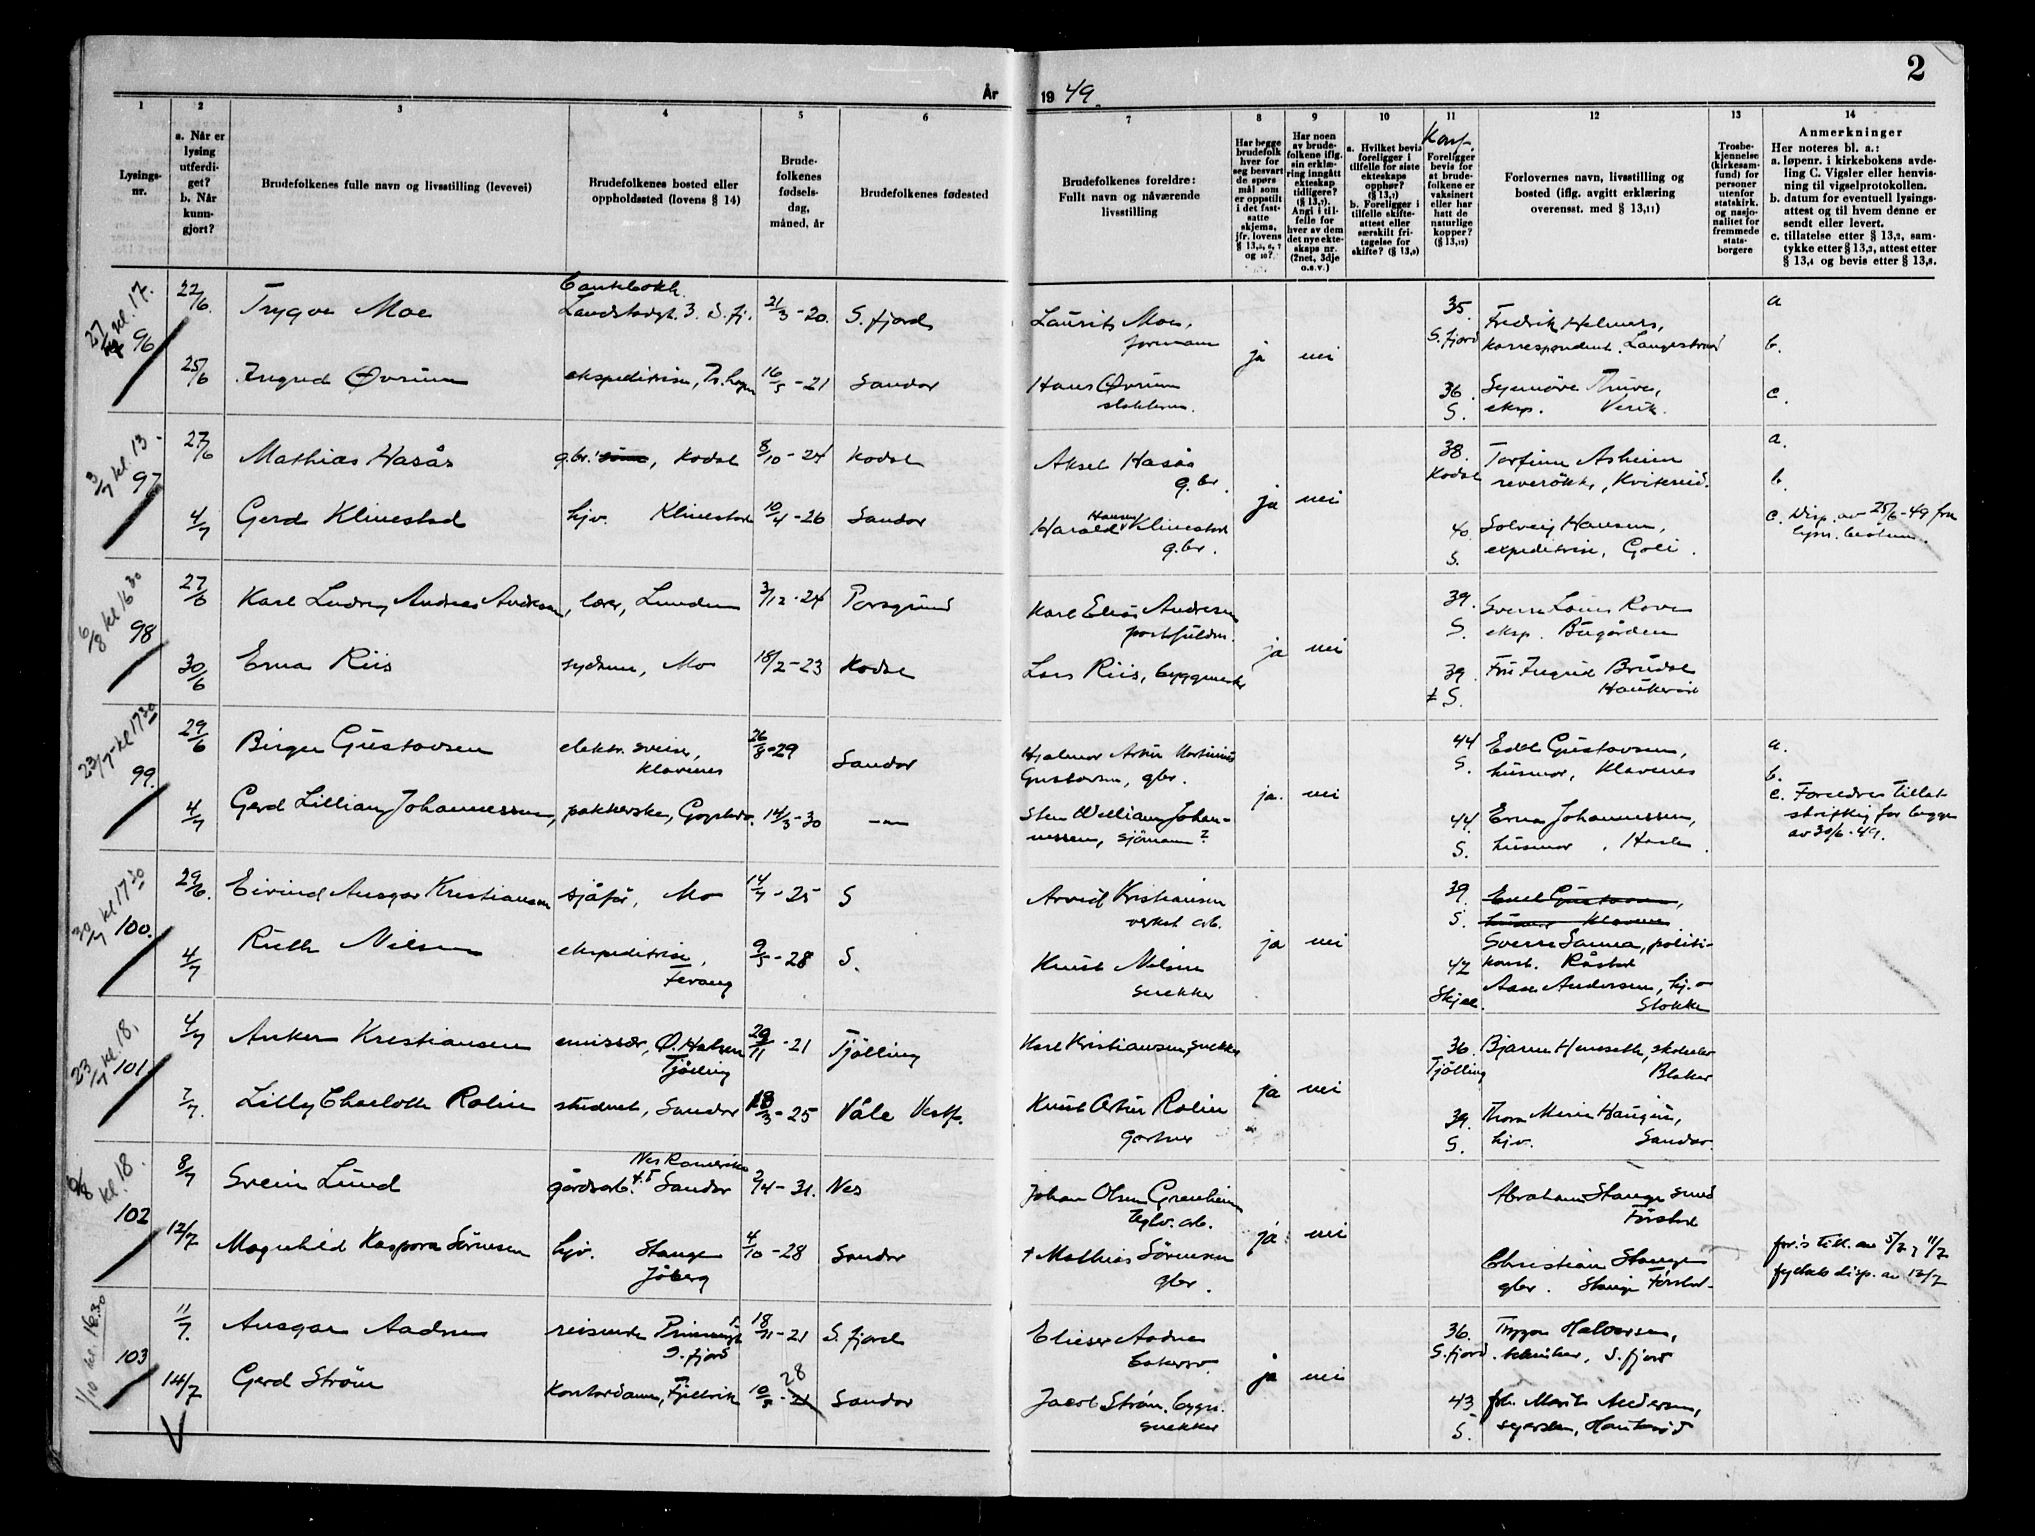 2
År 1949.
1 2 3 4 5 6 7 8 9 10 11 12 13 14
Lysings-
nr.
a. Når er
lysing
utferdi-
get?
b. Når
kunn-
gjort?
Brudefolkenes fulle navn og livsstilling (levevei)
Brudefolkenes bosted eller
oppholdssted (lovens § 14)
Brude-
folkenes
fødsels-
dag,
måned, år
Brudefolkenes fødested
Brudefolkenes foreldre:
Fullt navn og nåværende
livsstilling
Har begge
brudefolk
hver for
seg besvart
de spørs-
mål som
er oppstilt
i det fast-
satte
skjema,
jfr. lovens
§ 13,5, 6, 7
og 10?
Har noen
av brude-
folkene iflg.
sin erklæ-
ring inngått
ekteskap
tidligere?
(§ 13,7).
Angi i til-
felle for
hver av dem
det nye ekte-
skaps nr.
(2net, 3dje
o.s.v.)
a. Hvilket bevis
foreligger i
tilfelle for siste
ekteskaps
opphør?
(§ 13,7)
b. Foreligger i
tilfelle skifte-
attest eller
særskilt fri-
tagelse for
skifte? (§ 13,9)
Konf.
Foreligger
bevis for
at brude-
folkene er
vaksinert
eller har
hatt de
naturlige
kopper?
(§ 13,12)
Forlovernes navn, livsstilling og
bosted (iflg. avgitt erklæring
overensst. med § 13,11)
Trosbe-
kjennelse
(kirkesam-
fund) for
personer
utenfor
statskirk.
og nasjo-
nalitet for
fremmede
stats-
borgere
Anmerkninger
Her noteres bl. a.:
a. løpenr. i kirkebokens avde-
ling C. Vigsler eller henvis-
ning til vigselprotokollen.
b. datum for eventuell lysings-
attest og til hvem denne er
sendt eller levert.
c. tillatelse etter § 13,2, sam-
tykke etter § 13,3, attest etter
§ 13,4 og bevis etter § 13,8.
kl. 17.
96
22/6. Trygve Moe
Landstadgt. 3. S.fj. 21/3-20. S.fjord
Laurits Moe,
formann
35.
S.fjord
Fredrik Helmers,
korrespondent. Langestrand
a
b.
c.
25/6 Ingrid Øvrum
16/5-21 Sandar
Hans Øvrum
ja nei
36.
S.
eksp.
3/7 kl. 13-
97
27/6 Mathias Hasås
gbr. , Kodal 8/10-24 Kodal
Aksel Hasås
g.br.
38.
Kodal
Torfinn Askim
a.
b.
4/7 Gerd Klinestad
hjv. Klinestad 10/4-26 Sandar
Harald Hansen Klinestad
g.br.
ja nei
40.
S.
Solveig Hansen,
expeditrise, Goli.
c. Disp. av 25/6-49 fra
6/8 kl 16 30
98
27/6 Karl Ludvig Andreas Andresen, lærer, Lunden 3/12-24 Porsgrund
Karl Elias Andresen
postfuldm.
39.
S.
eksp. Bugården
30/6 Erna Riis
sydame, Mo 18/2-23 Kodal
Lars Riis, byggmester
ja nei
39
S.
Fru Ingrid Brudal
Haukerød
23/7- kl 17 30
99.
29/6 Birger Gustavsen
elektr. sveiser,
Klavenes
26/8-29
Sandar
Hjalmar Artur Martinius
Gustavsen, gbr.
44
S.
Edel Gustavsen,
husmor, Klavenes
a.
b.
4/7 Gerd Lillian Johannessen,
pakkerske, 14/3-30 -"-
Sten William Johan-
nessen, sjömann?
ja. nei
44.
S.
Erna Johannessen,
husmor, Hasle.
c. Foreldres tillat.
skriftlig for begge
av 30/6-49.
30/7 kl 17 30
100.
29/6. Eivind Ansgar Kristiansen
sjåfør, Mo 14/7-25 S
Arvid Kristiansen
verkst. arb.
39.
S.
Edel Gustavsen,
husmor Klavenes
Sverre Sanna, politi-
konst. Råstad
4/7 Ruth Nilsen
ekspeditrise,
Fevang
9/5-28 S.
Knut Nilsen
snekker
ja nei
42
Skjee.
Aase Andersen, hj.
Stokke
23/7 kl. 18.
101
4/7 Anker Kristiansen
emissær, Ø. Halsen
Tjölling
29/11-21 Tjölling
Karl Kristiansen, snekker
36.
Tjölling
Blaker
7/7. Lilly Charlotte Rolin
student, Sandar 18/3-25 Våle Vestf.
Knut Artur Rolin
gartner
ja nei
39.
S.
hjv. Sandar.
6/8 kl. 18.
102
8/7 Svein Lund
Nes Romerike
gårdsarb. Sandar 9/4-31. Nes
Johan Olsen
Abraham Stange
12/7 Magnhild Kaspara Sörensen
hjv. Stange
Jåberg
4/10-28 Sandar
† Mathias Sörensen
gbr.
ja nei
Christian Stange
gbr. Stange
for.s till. av 5/7, 11/7
fylkets disp. av 12/7
1/10 kl. 16.30
103
11/7. Ansgar Aadnes
reisende
S.fjord
18/11-21 S.fjord
Elieser Aadnes
36.
S.fjord.
Trygve Halvorsen,
S.fjord
14/7 Gerd Ström
Kontordame, 10/5-28 Sandar
Jacob Ström. bygn.
snekker
ja nei
43
S.
frk. Marit Andersen,
Haukerød